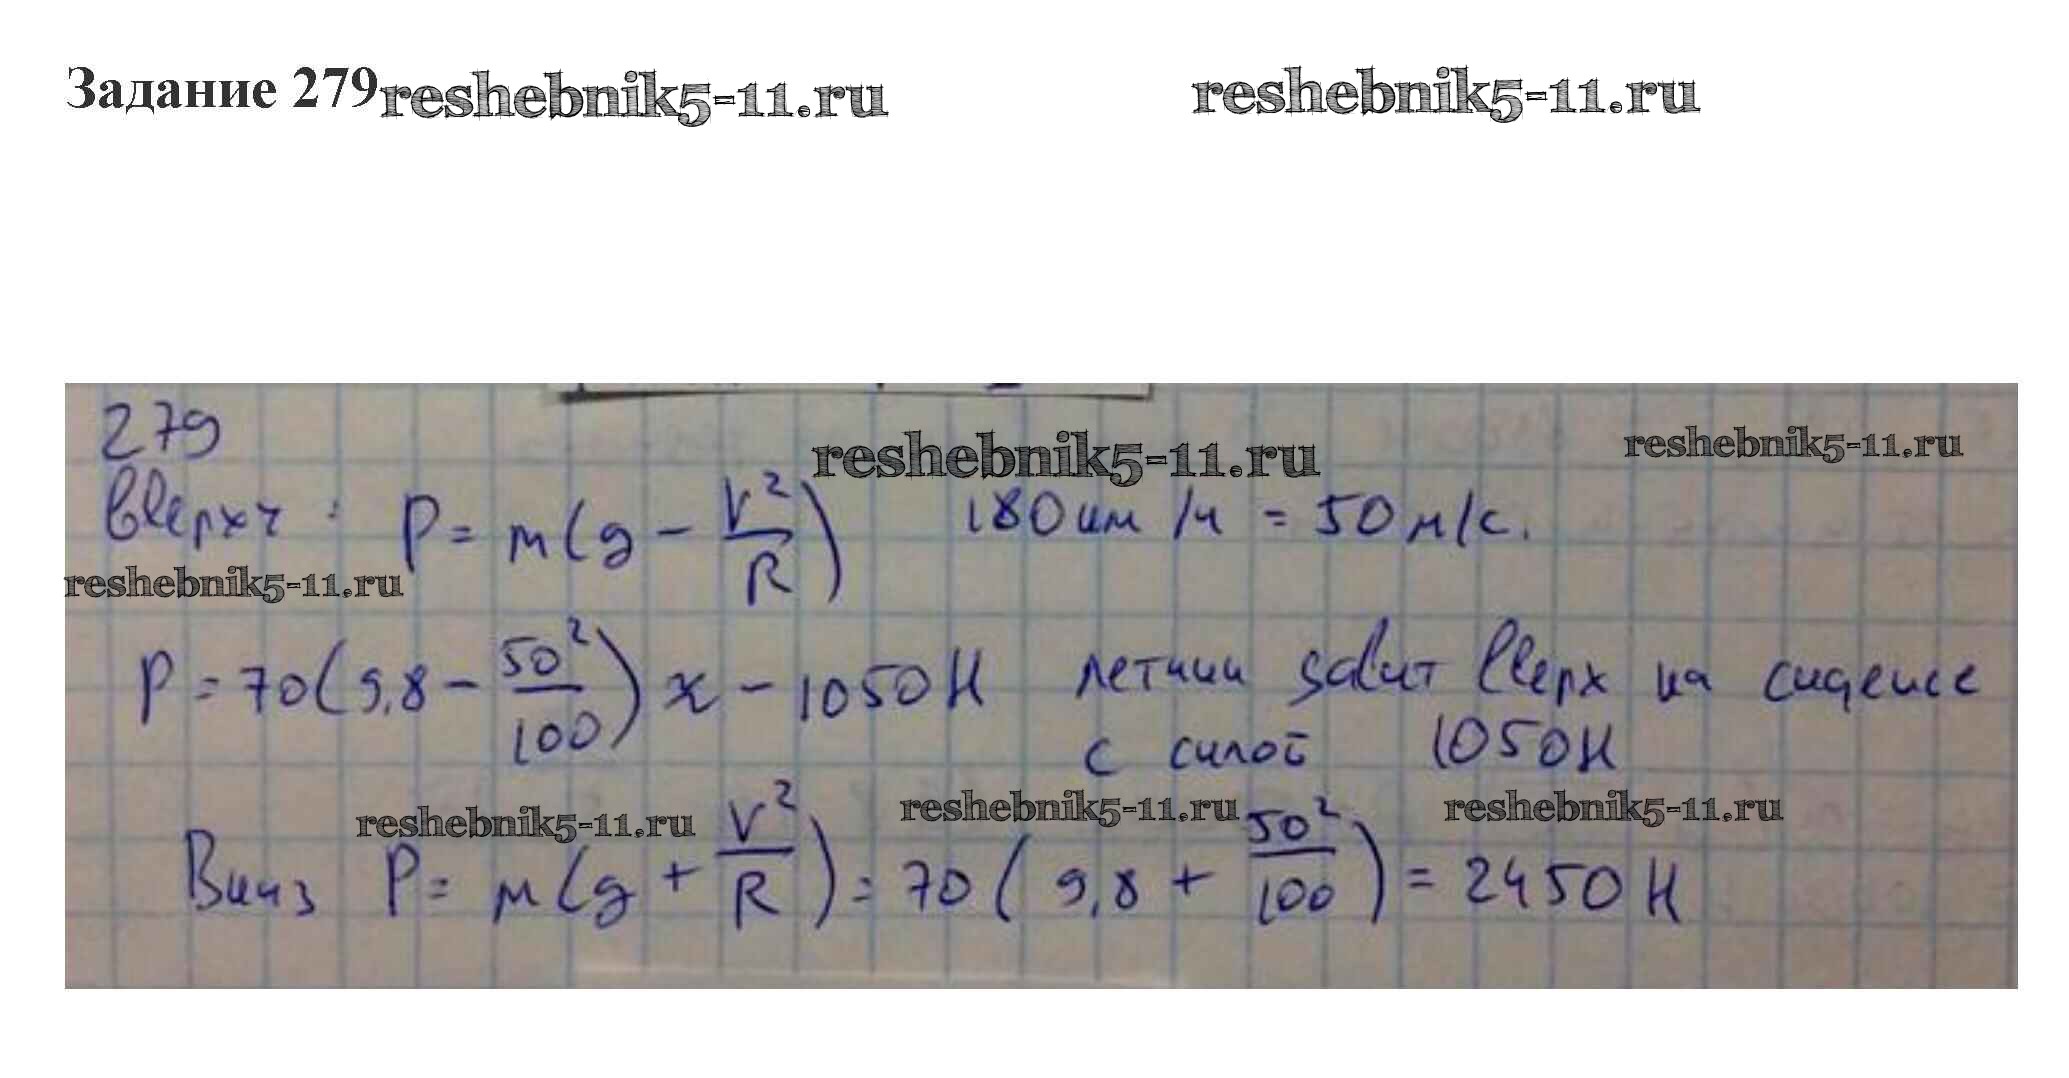 Задание 279 reshebnik5-11.ru reshebnik5-11.ru
279
reshebnik5-11.ru reshebnik5-11.ru
вверху: P = m(g - V²/R) 180 км/ч = 50 м/с.
reshebnik5-11.ru
P = 70(9,8 - 50²/100) ≈ -1050Н летчик давит вверх на сиденье
с силой 1050Н
reshebnik5-11.ru reshebnik5-11.ru reshebnik5-11.ru
Вниз P = m(g + V²/R) = 70(9,8 + 50²/100) = 2450Н